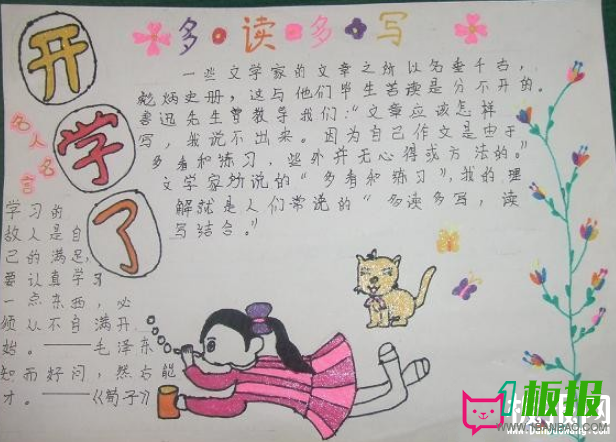 开学了
多读多写
一些文学家的文章之所以名垂千古，
彪炳史册，这与他们毕生苦读是分不开的。
鲁迅先生曾教导我们：“文章应该怎样
写，我说不出来。因为自己作文是由于
多看和练习，此外并无心得或方法的。”
文学家所说的“多看和练习”，我的理
解就是人们常说的“多读多写，读
写结合。”
名人名言
学习的
敌人是自
己的满足，
要认真学习
一点东西，必
须从不自满开
始。——毛泽东
知而好问，然后能
才。——《荀子》
1板报
www.1banbao.com